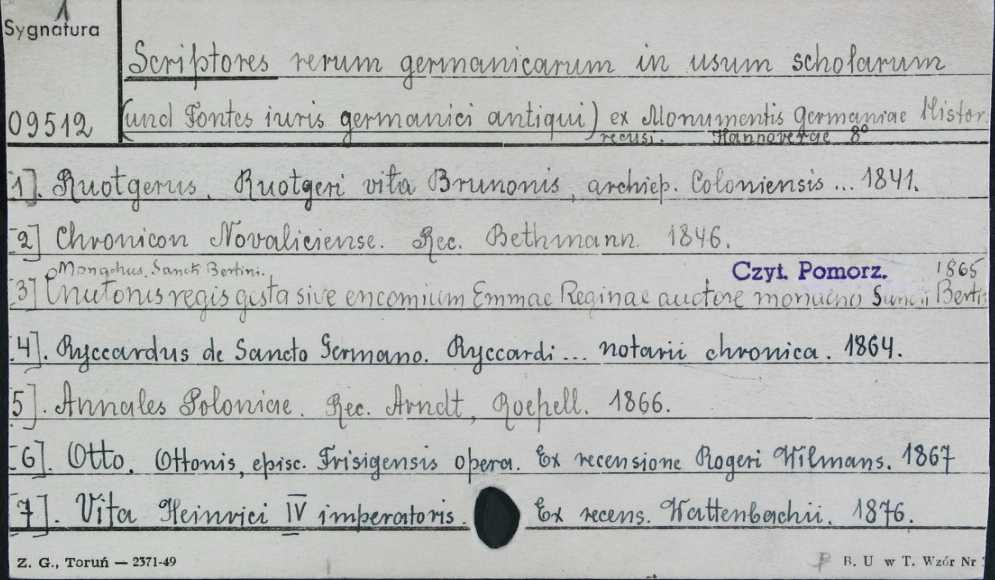 1
Sygnatura
09512
Scriptores rerum germanicarum in usum scholarum
(und Fontes iuris germanici antiqui) ex Monumentis Germaniae Histor.
recusi. Hannoverae 8°
[1]. Ruotgerus. Ruotgeri vita Brunonis, archiep. Coloniensis ... 1841.
[2] Chronicon Novaliciense. Rec. Bethmann. 1846.
Monachus Sancti Bertini. Czyt. Pomorz. 1865
[3] Cnutonis regis gesta sive encomium Emmae Reginae auctore monacho Sancti Berti
[4]. Ryccardus de Sancto Germano. Ryccardi ... notarii chronica. 1864.
[5]. Annales Poloniae. Rec. Arndt, Roepell. 1866.
[6]. Otto. Ottonis, episc. Frisigensis opera. Ex recensione Rogeri Wilmans. 1867
[7]. Vita Heinrici IV imperatoris. Ex recens. Wattenbachii. 1876.
Z. G., Toruń — 2371-49
B. U w T. Wzór Nr